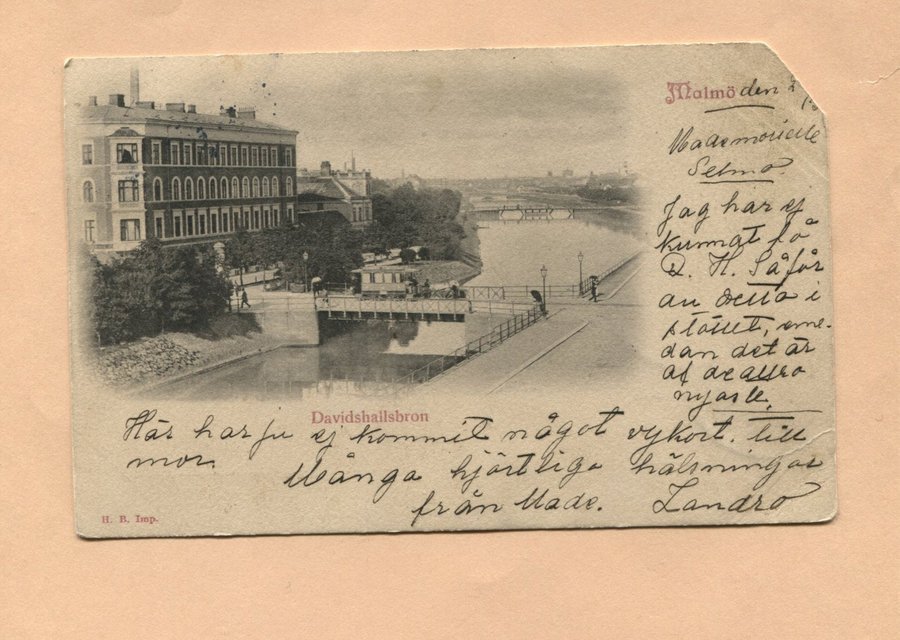 Malmö den
Mademoiselle
Selma.
Jag har ej
kunnat få
D. H. Såfår
du detta i
stället, eme-
dan det är
af de allra
nyaste.
Davidshallsbron
Här har ju ej kommit något vykort till
mor.
Många hjärtliga hälsningar
från Made. Landro
H. B. Imp.